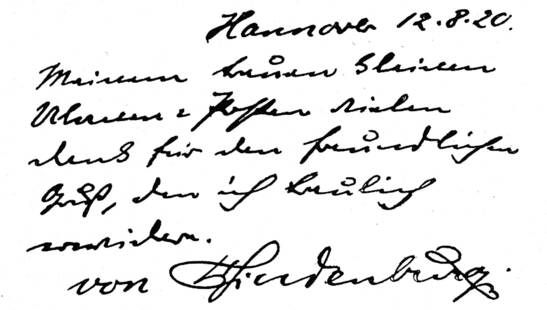 Hannover 12.8.20.
Meinem treuen kleinen
Ulanen = Posten vielen
Dank für den freundlichen
Gruß, den ich treulich
erwidere.
von Hindenburg.